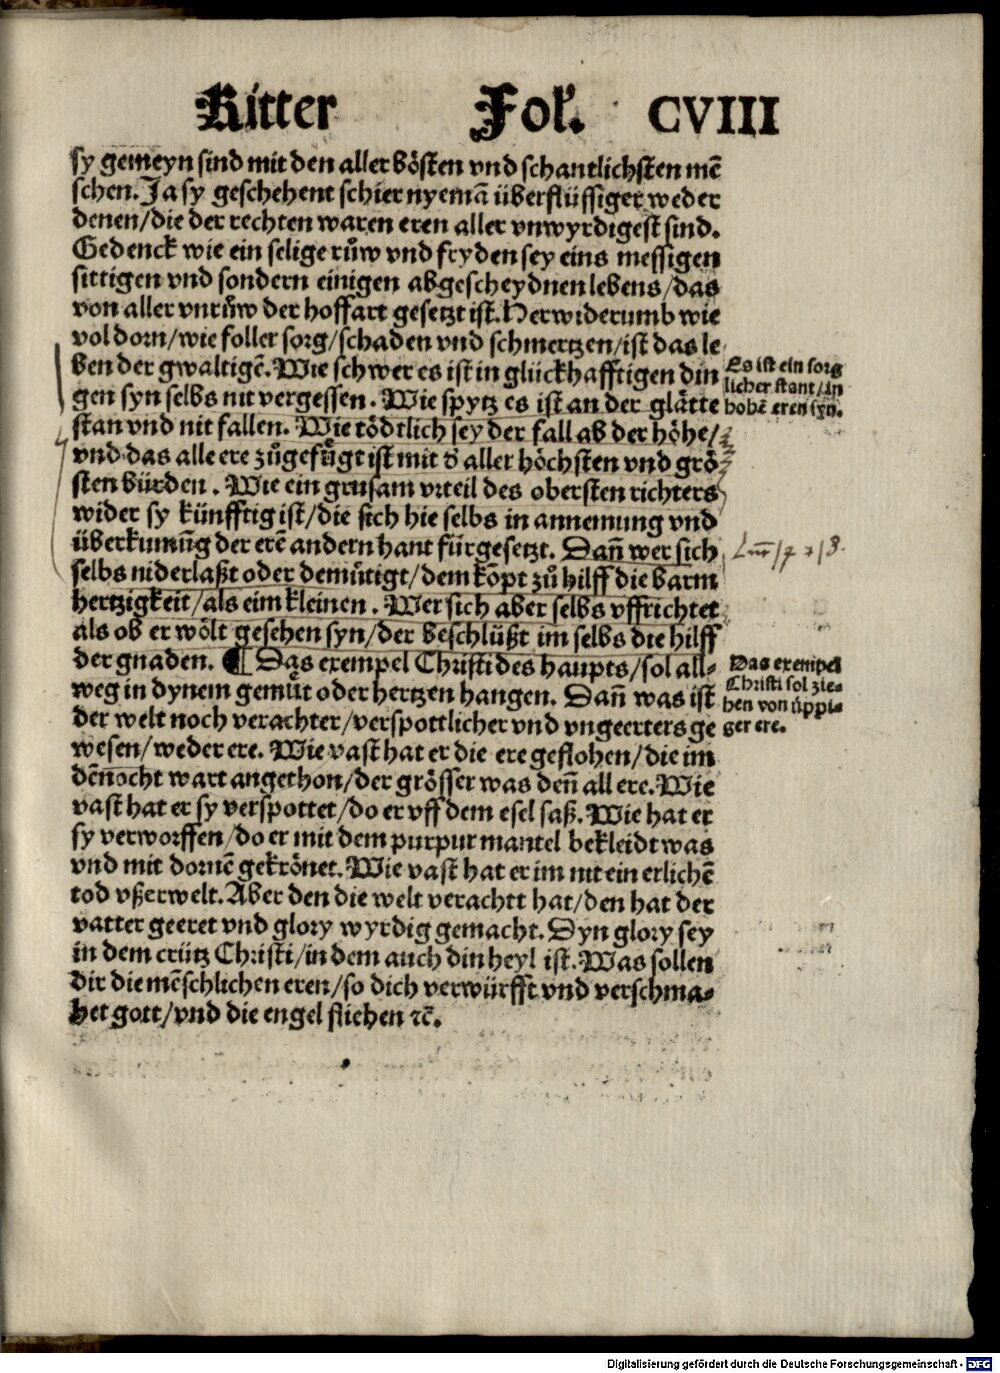 Ritter Fol. CVIII
sy gemeyn sind mit den aller bösten vnd schantlichsten mē
schen. Ja sy geschehent schier nyemā überflüssiger weder
denen/die der rechten waren eren aller vnwyrdigest sind.
Gedenck wie ein selige růw vnd fryden sey eins messigen
sittigen vnd sondern einigen abgescheydnen lebens/das
von aller vnrůw der hoffart gesetzt ist. Herwiderumb wie
vol dorn/wie foller sorg/schaden vnd schmertzen/ist das le
ben der gwaltigē. Wie schwer es ist in glückhafftigen din
gen syn selbs nit vergessen. Wie spytz es ist an der glätte
stan vnd nit fallen. Wie tödtlich sey der fall ab der höhe/
vnd das alle ere zůgefůgt ist mit d̄ aller höchsten vnd grö
sten bürden. Wie ein grusam vrteil des obersten richters
wider sy künfftig ist/die sich hie selbs in annemung vnd
überkumūg der erē andern hant fürgesetzt. Dañ wer sich
selbs niderlaßt oder demůtigt/dem kōpt zů hilff die barm
hertzigkeit/als eim kleinen. Wer sich aber selbs vffrichtet
als ob er wölt gesehen syn/der beschlüßt im selbs die hilff
der gnaden. ¶ Das exempel Christi des haupts/sol all-
weg in dynem gemůt oder hertzen hangen. Dañ was ist
der welt noch verachter/verspottlicher vnd vngeerters ge
wesen/weder ere. Wie vast hat er die ere geflohen/die im
deñocht wart angethon/der grösser was deñ all ere. Wie
vast hat er sy verspottet/do er vff dem esel saß. Wie hat er
sy verworffen/do er mit dem purpur mantel bekleidt was
vnd mit dornē gekrönet. Wie vast hat er im nit ein erlichē
tod vßerwelt. Aber den die welt verachtt hat/den hat der
vatter geeret vnd glory wyrdig gemacht. Dyn glory sey
in dem crütz Christi/in dem auch din heyl ist. Was sollen
dir die mēschlichen eren/so dich verwürfft vnd verschma-
het gott/vnd die engel fliehen ⁊c̄.
Es ist ein sorg
licher stant/in
hohē eren syn.
Das exempel
Christi sol zie-
hen von üppi-
ger ere.
Digitalisierung gefördert durch die Deutsche Forschungsgemeinschaft - DFG